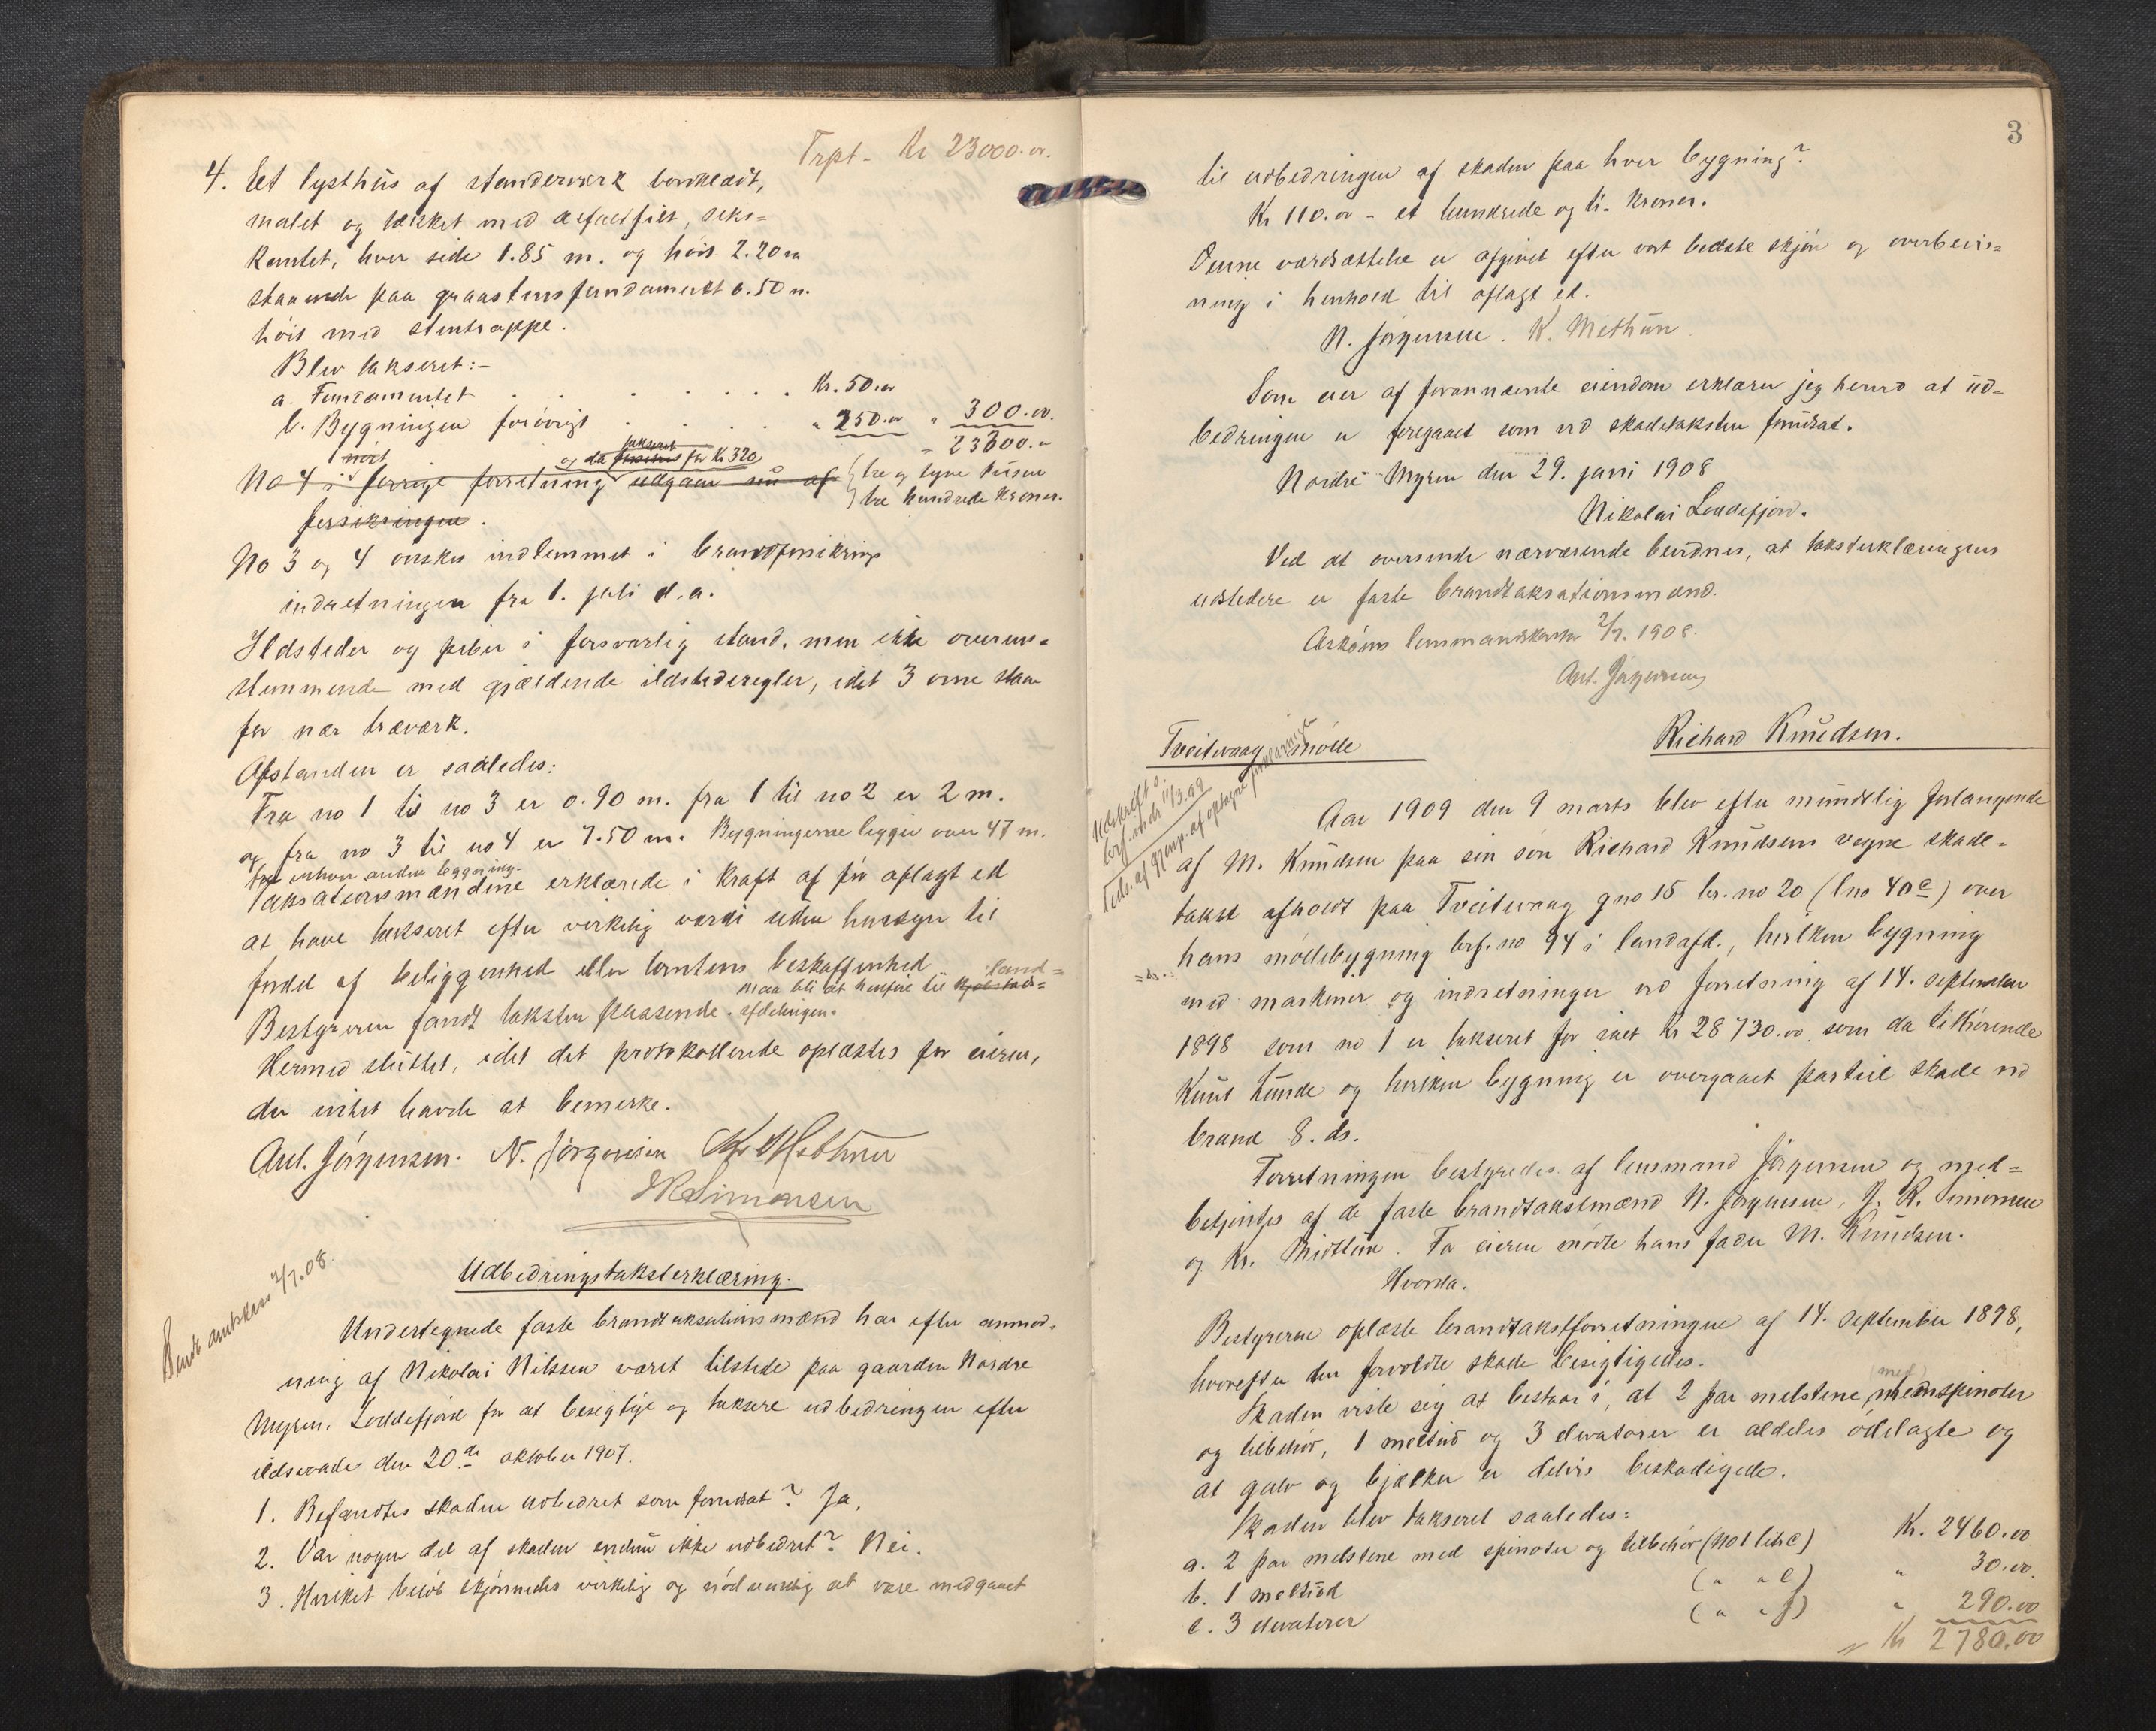 Trpt - Kr 23000.00.
4. Et lysthus af stenderværk bordklædt,
malet og tækket med asfaltfilt, seks-
kantet, hver side 1.85 m. og höit 2.20 m
staaende paa graastensfundament 0.50 m.
höit med stentrappe.
Blev takseret:-
a. Fundamentet . . . . . . Kr. 50.00
b. Bygningen forövrigt . . . . " 250.00 " 300.00.
" 23300.00
No 4 i forrige forretning og da takseret for Kr 320 udgaar nu af
forsikringen.
tre og tyve tusen
tre hundrede kroner.
No 3 og 4 önskes indlemmet i brandforsikrings
indretningen fra 1. juli d.a.
Ildsteder og piber i forsvarlig stand, men ikke overens-
stemmende med gjældende ildstedsregler, idet 3 ovne staar
for nær træværk.
Afstanden er saaledes:
Fra no 1 til no 3 er 0.90 m. fra 1 til no 2 er 2 m.
og fra no 3 til no 4 er 7.50 m. Bygningerne ligger over 47 m.
fra enhver anden bygning.
Taksationsmændene erklærede i kraft af för aflagt ed
at have takseret efter virkelig værdi uden hensyn til
fordel af beliggenhed eller tomtens beskaffenhed
Bestyreren fandt taksten passende. maa bli at henføre til kjøbstads= land=
afdelingen.
Hermed sluttet, idet det protokollerede oplæstes for eieren,
der intet havde at bemerke.
Ant. Jörgensen. N. Jörgensen Kr Methun
J R Simonsen
Sendt amtskass 2/7.08.
Udbedringstaksterklæring.
Undertegnede faste brandtaksationsmænd har efter anmod-
ning af Nikolai Nilssen været tilstede paa gaarden Nordre
Myren, Loddefjord for at besigtige og taksere udbedringen efter
ildsvaade den 20de oktober 1907.
1. Befandtes skaden udbedret som forudsat? Ja.
2. Var nogen del af skaden endnu ikke udbedret? Nei.
3. Hvilket beløb skjönnedes virkelig og nödvendig at være medgaaet
3
til udbedringen af skaden paa hver bygning?
Kr 110.00 - et hundrede og ti - kroner.
Denne værdsættelse er afgivet efter vort bedste skjön og overbevis=
ning i henhold til aflagt ed.
N. Jörgensen. K. Methun
Som eier af forannævnte eiendom erklærer jeg herved at ud=
bedringen er foregaaet som ved skadetaksten forudsat.
Nordre Myren den 29. juni 1908
Nikolai Loddefjord.
Ved at oversende nærværende bevidnes, at taksterklæringens
udstedere er faste brandtaksationsmænd.
Askøens lensmandskontor 2/7. 1908.
Ant. Jörgensen
Tveitevaag mölle
Richard Knudsen.
Udskrift o.
brf. sendt 11/3.09
Aar 1909 den 9 marts blev efter mundtlig forlangende
af M. Knudsen paa sin sön Richard Knudsens vegne skade-
takst afholdt paa Tveitevaag gno 15 br. no 20 (lno 40c) over
hans möllebygning brf. no 94 i landafd., hvilken bygning
med maskiner og indretninger ved forretning af 14. september
1898 som no 1 er takseret for ialt Kr 28730.00 som da tilhörende
Knut Lunde og hvilken bygning er overgaaet partiel skade ved
brand 8. ds.
Forretningen bestyredes af lensmand Jörgensen og med=
betjentes af de faste brandtakstmænd N. Jörgensen, J. R. Simonsen
og Kr. Midttun. For eieren mödte hans fader M. Knudsen.
Hvorda.
Bestyreren oplæste brandtakstforretningen af 14. september 1898,
hvorefter den forvoldte skade besigtigedes.
Skaden viste sig at bestaa i, at 2 par melstene, med spindler
og tilbehör, 1 meltud og 3 elevatorer er aldeles ödelagte og
at gulv og bjælker er delvis beskadigede.
Skaden blev takseret saaledes:
a. 2 par melstene med spindler og tilbehör (No 1 litr c) Kr. 2460.00
b. 1 meltud (" " e) " 30.00.
c. 3 elevatorer (" " f) " 290.00
Kr 2780.00